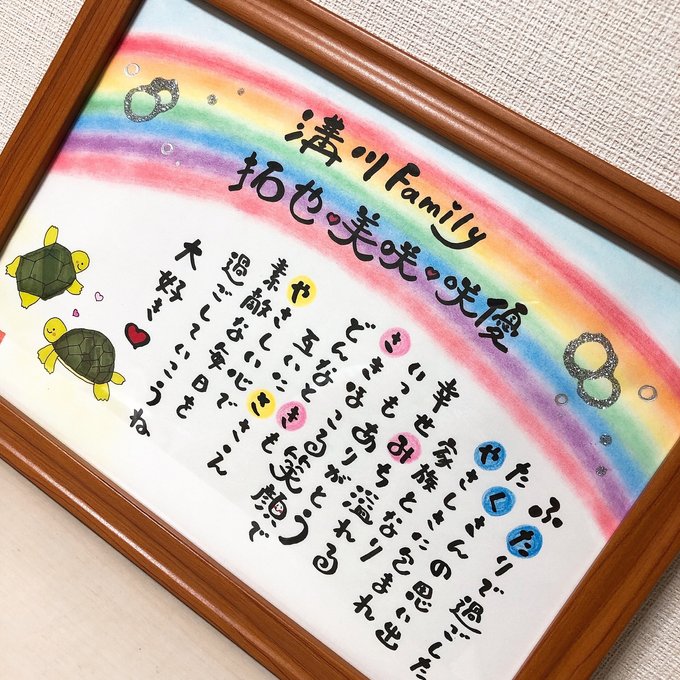 溝川Family
拓也♥美咲♥咲優
ふたりで過ごした
たくさんの思い出
やさしさに包まれ
幸せ家族となり
いつもみち溢れる
さきほこるありがとう
どんなときも笑顔で
互いにささえ
やさしい心で
素敵な毎日を
過ごしていこうね
大好き♥